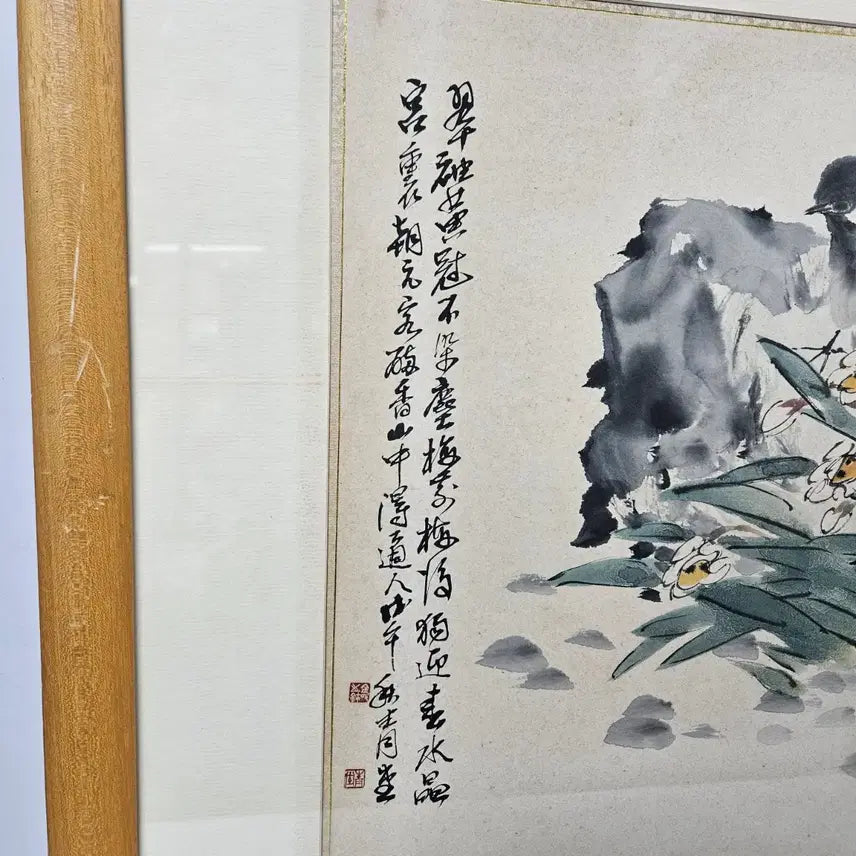 翠袖黃冠不染塵梅前梅後獨迎春水晶
宮裏朝元客醉香山中得道人戊午秋青堂